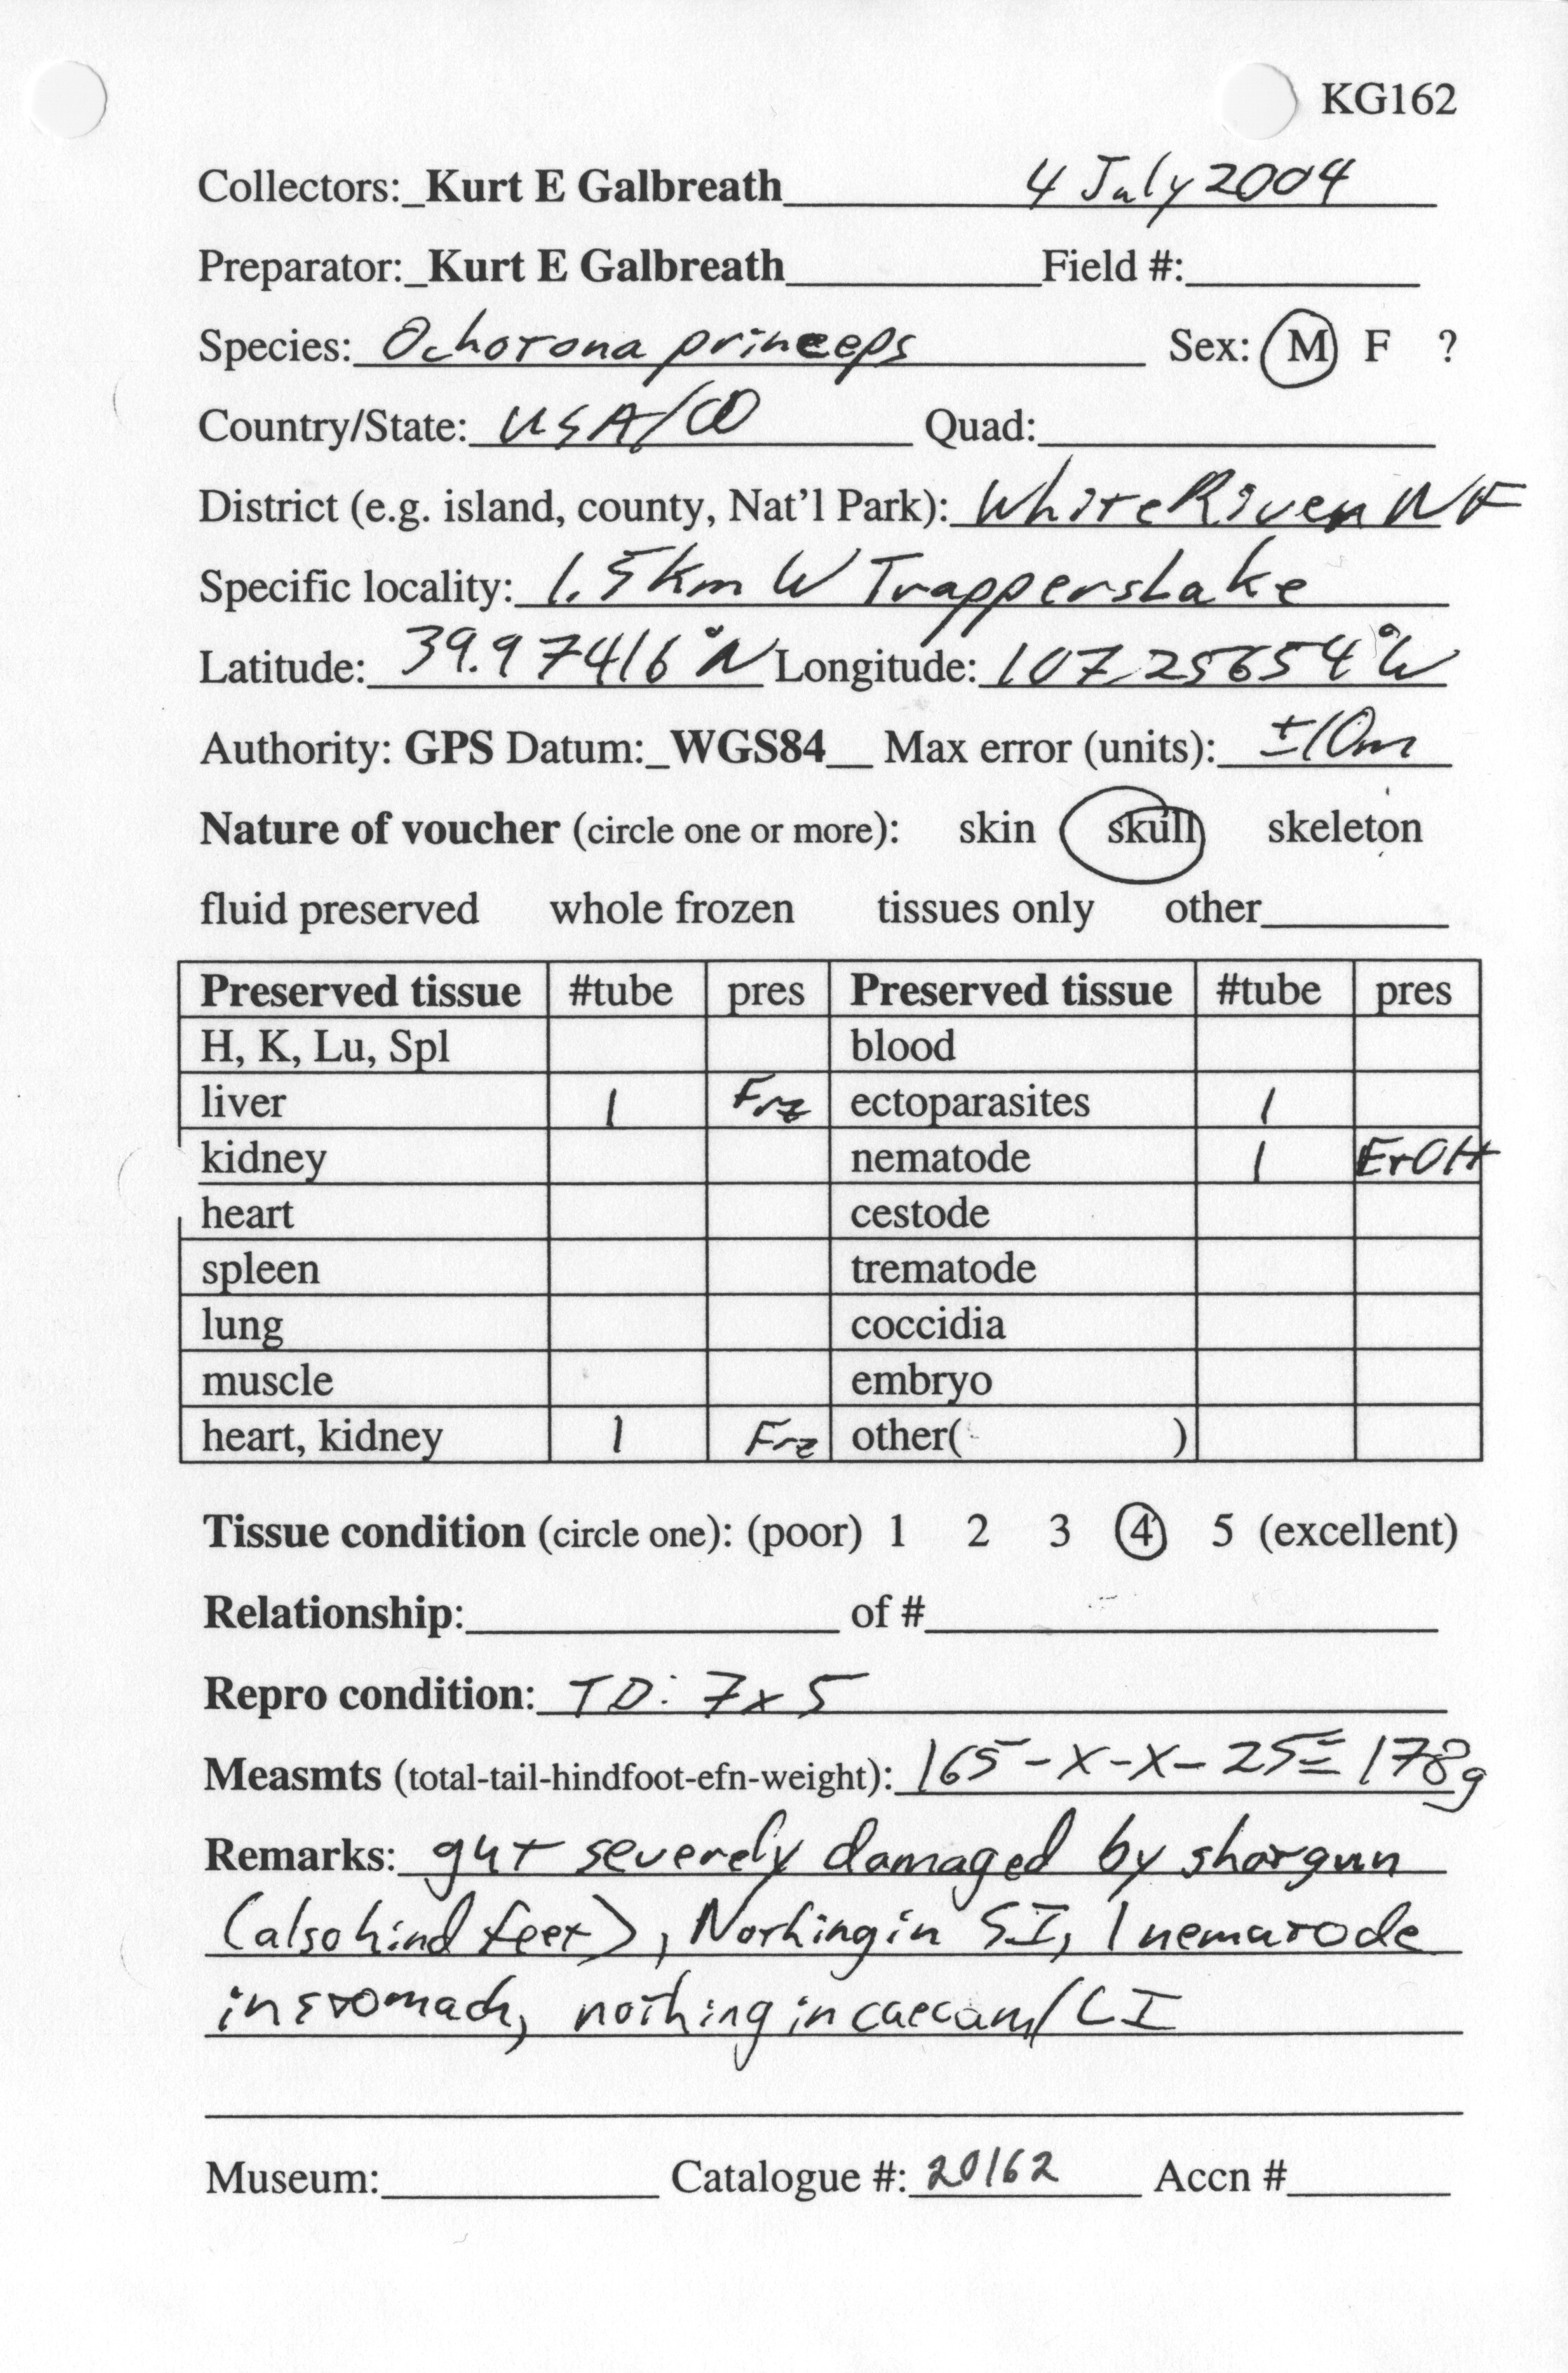 KG162
Collectors:_Kurt E Galbreath 4 July 2004
Preparator:_Kurt E Galbreath Field #:
Species: Ochotona princeps Sex: M F ?
Country/State: USA/CO Quad:
District (e.g. island, county, Nat'l Park): White River NF
Specific locality: 1.5 km W Trappers Lake
Latitude: 39.97416°N Longitude: 107.25654°W
Authority: GPS Datum:_WGS84__ Max error (units): ±10m
Nature of voucher (circle one or more): skin skull skeleton
fluid preserved whole frozen tissues only other
Preserved tissue #tube pres Preserved tissue #tube pres
H, K, Lu, Spl blood
liver 1 Frz ectoparasites 1
kidney nematode 1 EtOH
heart cestode
spleen trematode
lung coccidia
muscle embryo
heart, kidney 1 Frz other( )
Tissue condition (circle one): (poor) 1 2 3 4 5 (excellent)
Relationship: of #
Repro condition: TD: 7x5
Measmts (total-tail-hindfoot-efn-weight): 165-X-X-25≡178g
Remarks: gut severely damaged by shotgun
(also hind feet), Nothing in SI, 1 nematode
in stomach, nothing in caecam/LI
Museum: Catalogue #: 20162 Accn #